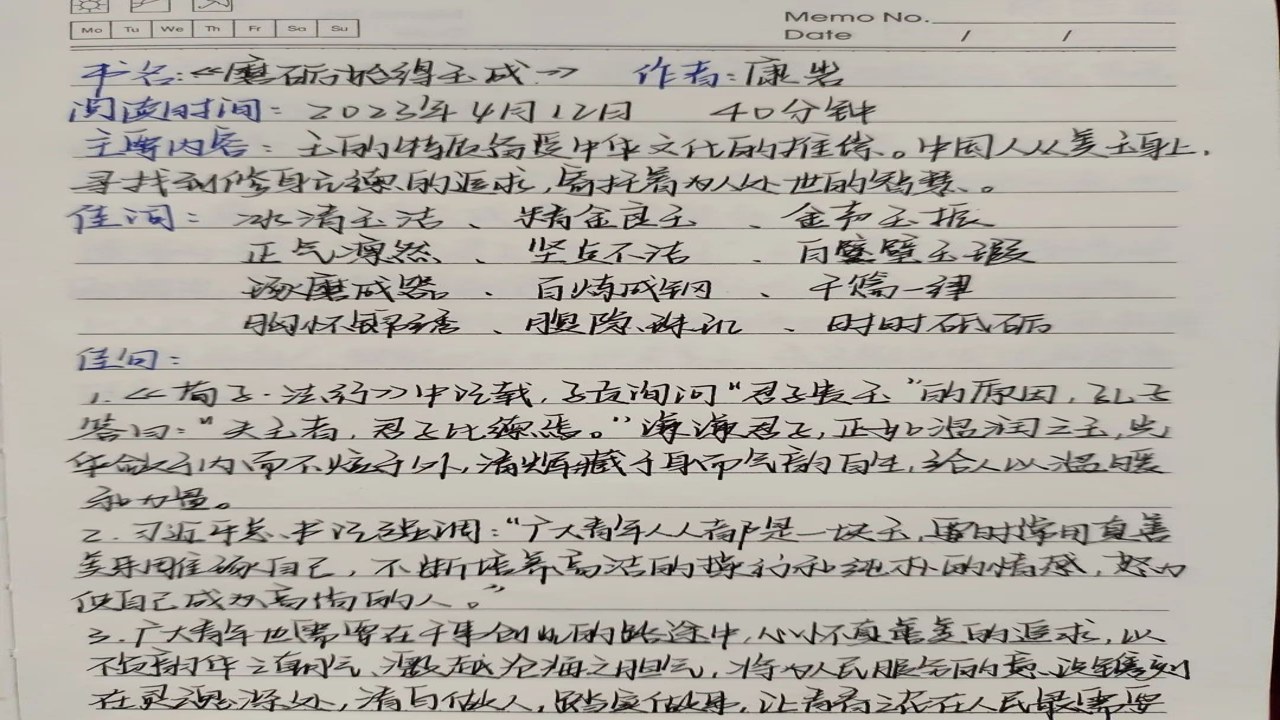 Memo No.
Mo Tu We Th Fr Sa Su
Date / /
书名：《磨砺始得玉成》 作者：康岩
阅读时间：2023年4月12日 40分钟
主要内容：玉的特质饱受中华文化的推崇。中国人从美玉身上，
寻找到修身立德的追求，寄托着为人处世的智慧。
佳词：冰清玉洁、精金良玉、金声玉振
正气凛然、坚贞不洁、白璧玉瑕
琢磨成器、百炼成钢、千篇一律
胸怀锦绣、腹隐珠玑、时时砥砺
佳句：
1.《荀子·法行》中记载，子贡询问“君子贵玉”的原因，孔子
答曰：“夫玉者，君子比德焉。”谦谦君子，正如温润之玉，光
华敛于内而不炫于外，清辉藏于身而气韵自生，给人以温暖
和力量。
2.习近平总书记强调：“广大青年人人都是一块玉，要时常用真善
美来雕琢自己，不断培养高洁的操行和纯朴的情感，努力
使自己成为高尚的人。”
3.广大青年也需要在干事创业的路途中，心怀真善美的追求，以
不负韶华之朝气、激越沧海之胆气，将为人民服务的意识镌刻
在灵魂深处，清白做人，踏实做事，让青春之花在人民最需要